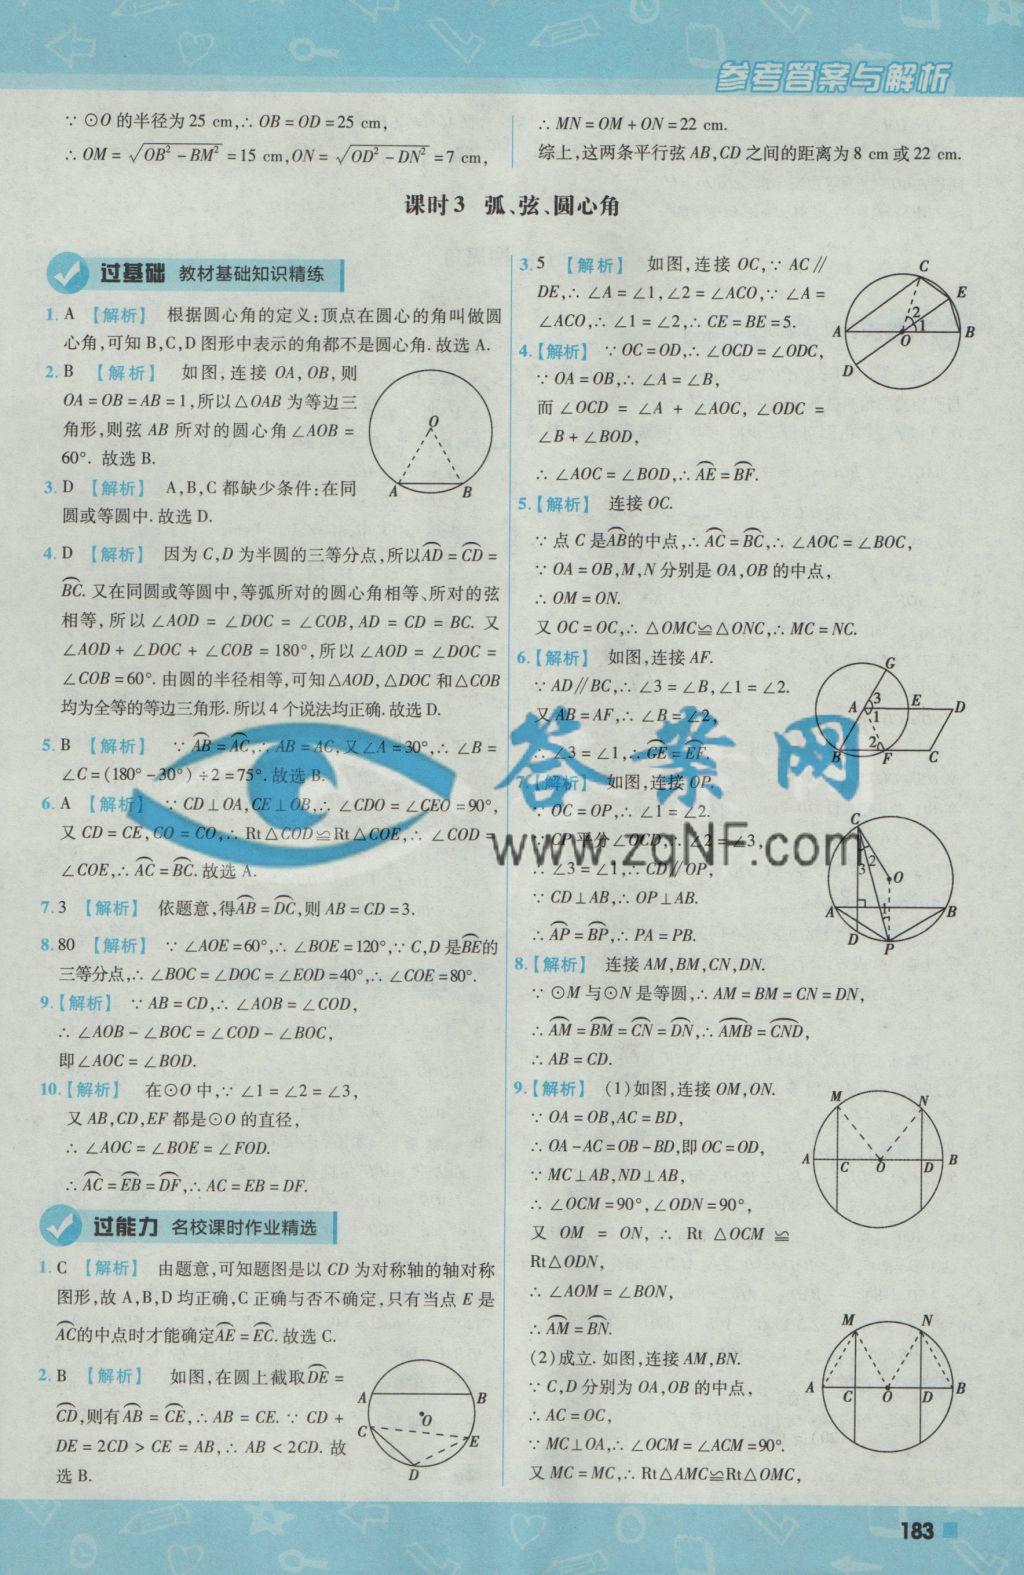 参考答案与解析
∵ ⊙O 的半径为 25 cm,∴ OB = OD = 25 cm,
∴ OM = √(OB² - BM²) = 15 cm, ON = √(OD² - DN²) = 7 cm,
∴ MN = OM + ON = 22 cm.
综上,这两条平行弦 AB,CD 之间的距离为 8 cm 或 22 cm.
课时 3 弧、弦、圆心角
过基础 教材基础知识精练
1. A 【解析】 根据圆心角的定义:顶点在圆心的角叫做圆
心角,可知 B,C,D 图形中表示的角都不是圆心角. 故选 A.
2. B 【解析】 如图,连接 OA,OB,则
OA = OB = AB = 1,所以△OAB 为等边三
角形,则弦 AB 所对的圆心角∠AOB =
60°. 故选 B.
O
A B
3. D 【解析】 A,B,C 都缺少条件:在同
圆或等圆中. 故选 D.
4. D 【解析】 因为 C,D 为半圆的三等分点,所以A͡D = C͡D =
B͡C. 又在同圆或等圆中,等弧所对的圆心角相等、所对的弦
相等,所以 ∠AOD = ∠DOC = ∠COB, AD = CD = BC. 又
∠AOD + ∠DOC + ∠COB = 180°,所以 ∠AOD = ∠DOC =
∠COB = 60°. 由圆的半径相等,可知△AOD,△DOC 和△COB
均为全等的等边三角形. 所以 4 个说法均正确. 故选 D.
5. B 【解析】 ∵ A͡B = A͡C,∴ AB = AC, 又∠A = 30°,∴ ∠B =
∠C = (180° - 30°) ÷ 2 = 75°. 故选 B.
6. A 【解析】 ∵ CD⊥OA,CE⊥OB,∴ ∠CDO = ∠CEO = 90°,
又 CD = CE, CO = CO,∴ Rt△COD≌Rt△COE,∴ ∠COD =
∠COE,∴ A͡C = B͡C. 故选 A.
7. 3 【解析】 依题意,得A͡B = D͡C,则 AB = CD = 3.
8. 80 【解析】 ∵ ∠AOE = 60°,∴ ∠BOE = 120°,∵ C,D 是B͡E的
三等分点,∴ ∠BOC = ∠DOC = ∠EOD = 40°,∴ ∠COE = 80°.
9. 【解析】 ∵ AB = CD,∴ ∠AOB = ∠COD,
∴ ∠AOB - ∠BOC = ∠COD - ∠BOC,
即∠AOC = ∠BOD.
10. 【解析】 在⊙O 中,∵ ∠1 = ∠2 = ∠3,
又 AB,CD,EF 都是⊙O 的直径,
∴ ∠AOC = ∠BOE = ∠FOD.
∴ A͡C = E͡B = D͡F,∴ AC = EB = DF.
过能力 名校课时作业精选
1. C 【解析】 由题意,可知题图是以 CD 为对称轴的轴对称
图形,故 A,B,D 均正确,C 正确与否不确定,只有当点 E 是
A͡C的中点时才能确定A͡E = E͡C. 故选 C.
2. B 【解析】 如图,在圆上截取D͡E =
C͡D,则有A͡B = C͡E,∴ AB = CE. ∵ CD +
DE = 2CD > CE = AB,∴ AB < 2CD. 故
选 B.
A B
O
C
E
D
3. 5 【解析】 如图,连接 OC,∵ AC∥
DE,∴ ∠A = ∠1,∠2 = ∠ACO,∵ ∠A =
∠ACO,∴ ∠1 = ∠2,∴ CE = BE = 5.
C
E
2
1
A O B
D
4. 【解析】 ∵ OC = OD,∴ ∠OCD = ∠ODC,
∵ OA = OB,∴ ∠A = ∠B,
而 ∠OCD = ∠A + ∠AOC, ∠ODC =
∠B + ∠BOD,
∴ ∠AOC = ∠BOD,∴ A͡E = B͡F.
5. 【解析】 连接 OC.
∵ 点 C 是A͡B的中点,∴ A͡C = B͡C,∴ ∠AOC = ∠BOC,
∵ OA = OB,M,N 分别是 OA,OB 的中点,
∴ OM = ON.
又 OC = OC,∴ △OMC≌△ONC,∴ MC = NC.
6. 【解析】 如图,连接 AF.
∵ AD∥BC,∴ ∠3 = ∠B,∠1 = ∠2.
又 AB = AF,∴ ∠B = ∠2,
∴ ∠3 = ∠1,∴ G͡E = E͡F.
G
3
A E D
1
2
B F C
7. 【解析】 如图,连接 OP.
∵ OC = OP,∴ ∠1 = ∠2.
∵ CP 平分∠OCD,∴ ∠2 = ∠3,
∴ ∠3 = ∠1,∴ CD∥OP,
∵ CD⊥AB,∴ OP⊥AB.
∴ A͡P = B͡P,∴ PA = PB.
C
2
3 O
A 1 B
D P
8. 【解析】 连接 AM,BM,CN,DN.
∵ ⊙M 与⊙N 是等圆,∴ AM = BM = CN = DN,
∴ A͡M = B͡M = C͡N = D͡N,∴ A͡MB = C͡ND,
∴ AB = CD.
9. 【解析】 (1)如图,连接 OM,ON.
∵ OA = OB,AC = BD,
∴ OA - AC = OB - BD,即 OC = OD,
∵ MC⊥AB,ND⊥AB,
∴ ∠OCM = 90°,∠ODN = 90°,
又 OM = ON, ∴ Rt △OCM ≌
Rt△ODN,
∴ ∠AOM = ∠BON,
∴ A͡M = B͡N.
M N
A C O D B
(2)成立. 如图,连接 AM,BN.
∵ C,D 分别为 OA,OB 的中点,
∴ AC = OC,
∵ MC⊥OA,∴ ∠OCM = ∠ACM = 90°.
又 MC = MC,∴ Rt△AMC≌Rt△OMC,
M N
A C O D B
答案网
www.zqNF.com
183